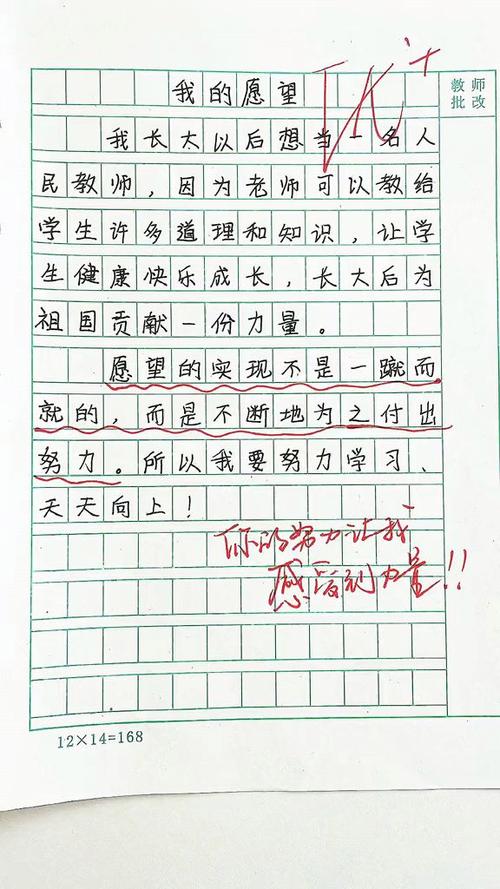 我的愿望
优+
教师
批改
我长大以后想当一名人
民教师，因为老师可以教给
学生许多道理和知识，让学
生健康快乐成长，长大后为
祖国贡献一份力量。
愿望的实现不是一蹴而
就的，而是不断地为之付出
努力。所以我要努力学习、
天天向上！
你的努力让我
感受到力量!!
12×14=168